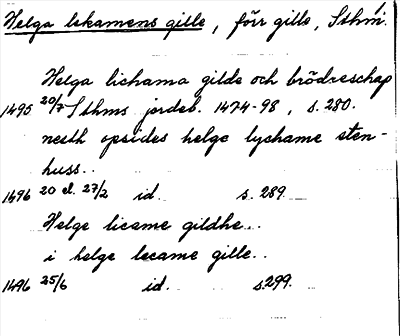 Helga lekamens gille, förr gille, Sthm.
Helga lichama gilde och brödreschap
1495 20/7 Sthms jordeb. 1474-98, s. 280.
nesth opsides helge lychame sten-
huss..
1496 20 el. 27/2 id. s. 289.
Helge licame gildhe..
i helge lecame gille..
1496 25/6 id. s. 299.